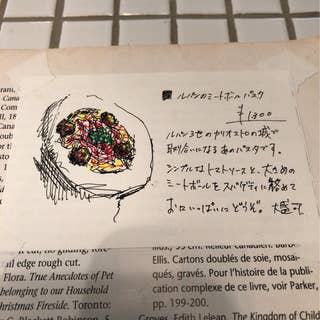 ■ ルパンのミートボールパスタ
¥1300
ルパン3世のカリオストロの城で
取り合いになるあのパスタです。
シンプルなトマトソースと、大きめの
ミートボールをスパゲティに絡めて
お口いっぱいにどうぞ。大盛可
ral edge rough cut.
Flora. True Anecdotes of Pet
belonging to our Household
Christmas Fireside. Toronto:
Ellis. Cartons doublés de soie, mosaï-
qués, gravés. Pour l'histoire de la publi-
cation complexe de ce livre, voir Parker,
pp. 199-200.
Groves, Edith Lelean. The Kingdom of Child